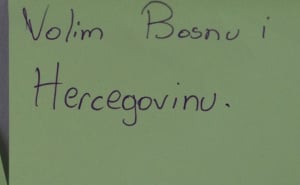 Volim Bosnu i
Hercegovinu.